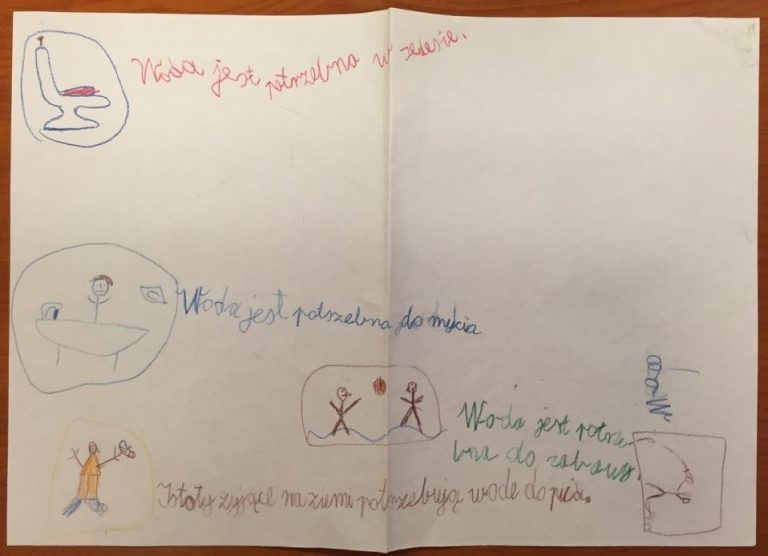 Woda jest potrzebna w zelesie.
Woda jest potrzebna do mycia
Woda
Woda jest potrze-
bna do zabawy.
Istoty żyjące na ziemi potrzebują wodę do picia.